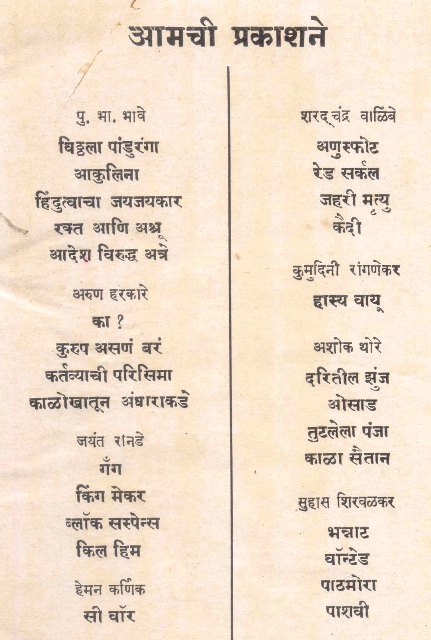 आमची प्रकाशने
पु. भा. भावे
विठ्ठला पांडुरंगा
आकुलिना
हिंदुत्वाचा जयजयकार
रक्त आणि अश्रू
आदेश विरुद्ध अत्रे
अरुण हरकारे
का ?
कुरुप असणं बरं
कर्तव्याची परिसिमा
काळोखातून अंधाराकडे
जयंत रानडे
गँग
किंग मेकर
ब्लॉक सस्पेन्स
किल हिम
हेमन कर्णिक
सी वॉर
शरद्चंद्र वाळिंबे
अणुस्फोट
रेड सर्कल
जहरी मृत्यु
कैदी
कुमुदिनी रांगणेकर
हास्य वायू
अशोक थोरे
दरितील झुंज
ओसाड
तुटलेला पंजा
काळा सैतान
सुहास शिरवळकर
भन्नाट
वॉन्टेड
पाठमोरा
पाशवी